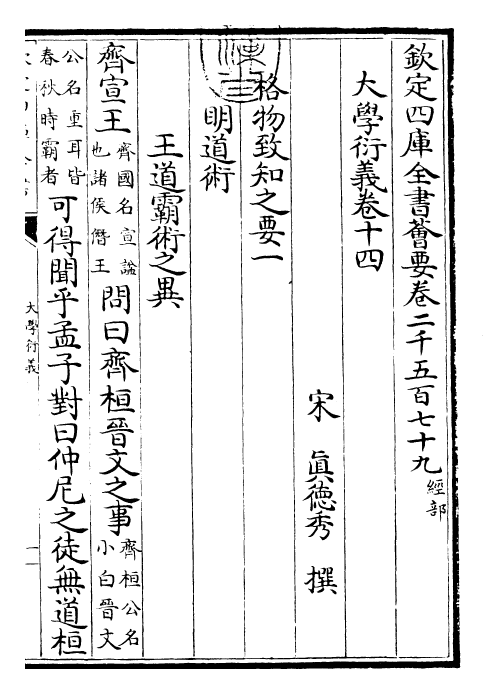 欽定四庫全書薈要卷二千五百七十九經部
大學衍義卷十四
宋 眞德秀 撰
格物致知之要一
明道術
王道霸術之異
齊宣王齊國名宣諡也諸侯僭王問曰齊桓晉文之事齊桓公名小白晉文
公名重耳皆春秋時霸者可得聞乎孟子對曰仲尼之徒無道桓
大學衍義